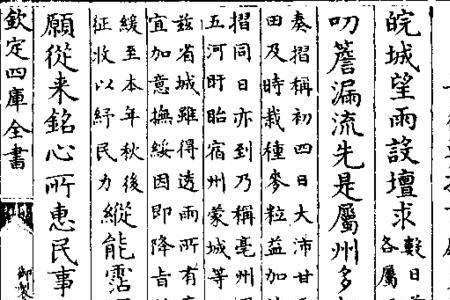 皖城望雨設壇求
數日
各屬
叨簷漏流先是屬州多
奏摺稱初四日大沛甘
田及時栽種麥粒益加
摺同日亦到乃稱亳州
五河盱眙宿州蒙城等
茲省城雖得透雨所有
宜加意撫綏因即降旨
緩至本年秋後
征收以紓民力
縱能霑
願從来銘心所惠民事
欽定四庫全書
御製